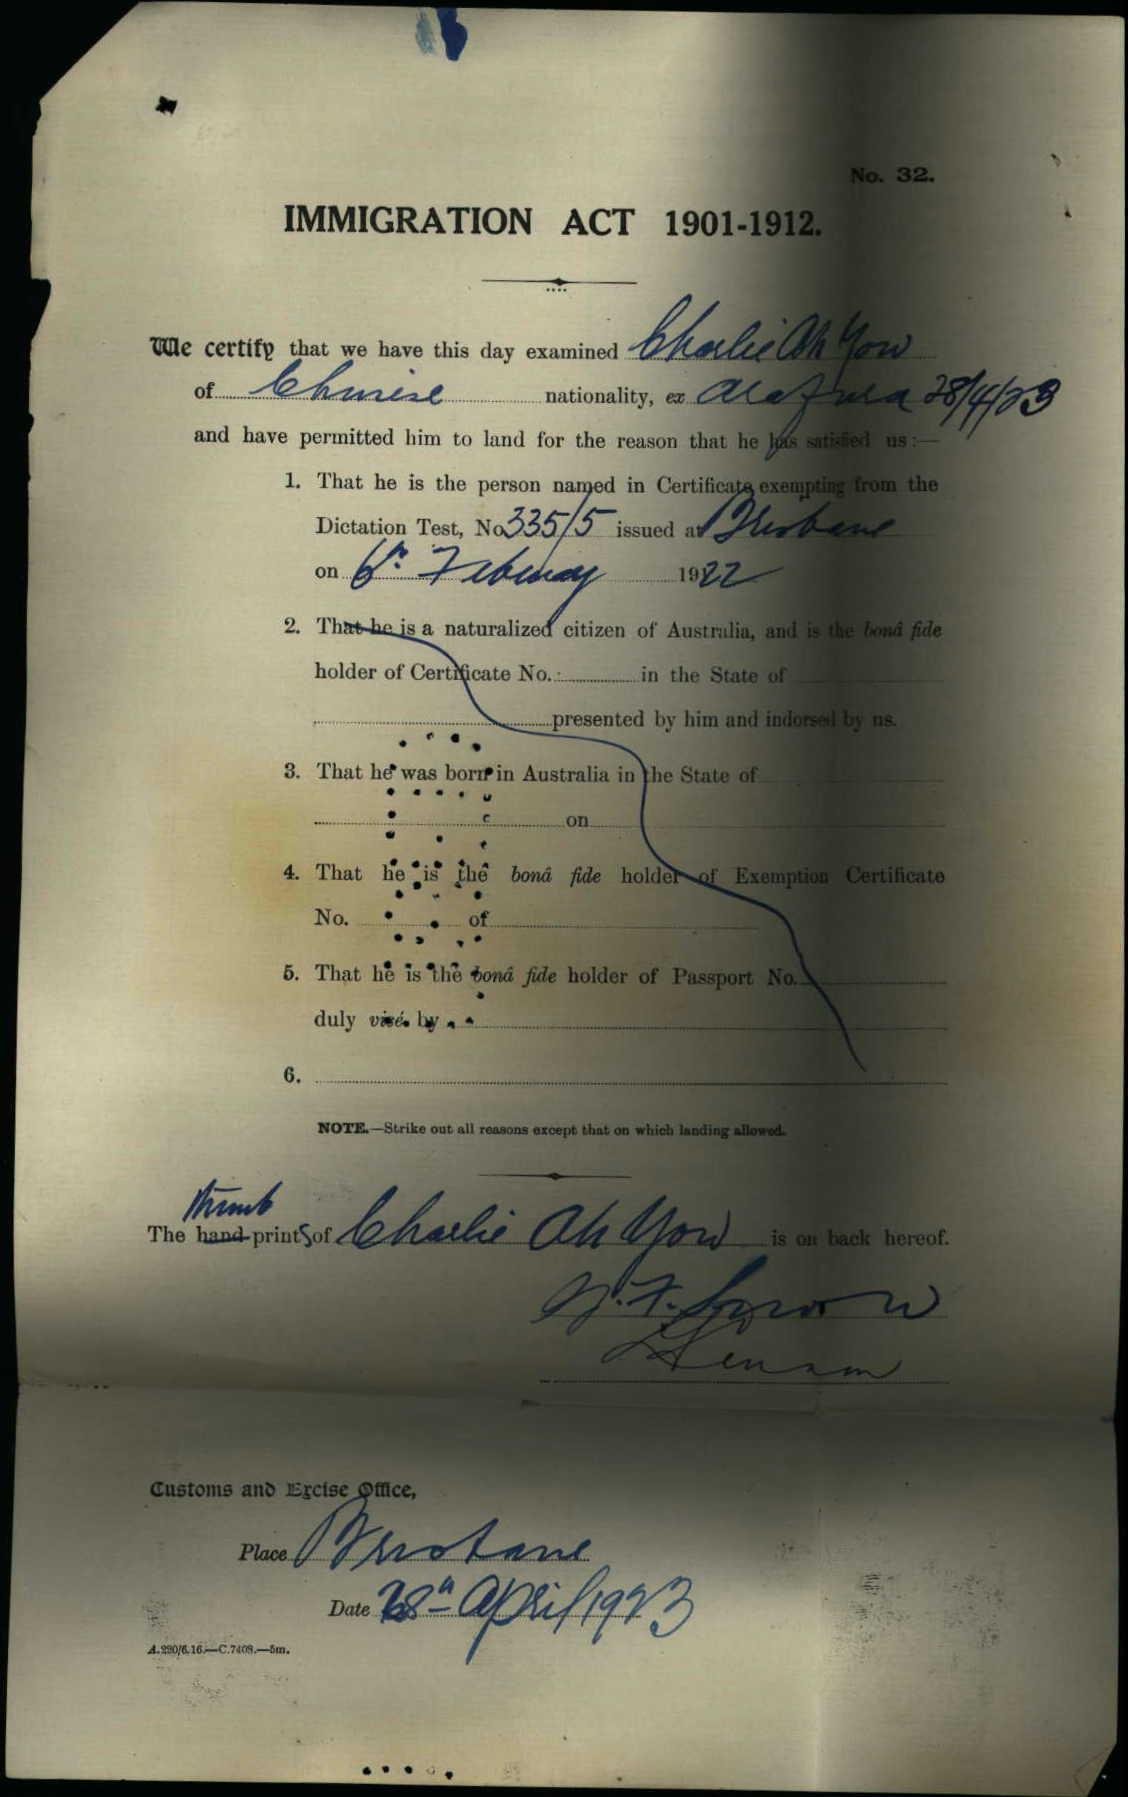 No. 32.
IMMIGRATION ACT 1901-1912.
We certify that we have this day examined Charlie Ah Yow
of Chinese nationality, ex Arafura 28/4/23
and have permitted him to land for the reason that he has satisfied us:—
1. That he is the person named in Certificate exempting from the
Dictation Test, No 335/5 issued at Brisbane
on 6th February 1922
2. That he is a naturalized citizen of Australia, and is the bonâ fide
holder of Certificate No. in the State of
presented by him and indorsed by us.
3. That he was born in Australia in the State of
on
4. That he is the bonâ fide holder of Exemption Certificate
No. of
5. That he is the bonâ fide holder of Passport No.
duly visé by
6.
NOTE.—Strike out all reasons except that on which landing allowed.
thumb
The hand prints of Charlie Ah Yow is on back hereof.
Customs and Excise Office,
Place Brisbane
Date 28th April 1923
A.220/6.16.—C.7408.—5m.